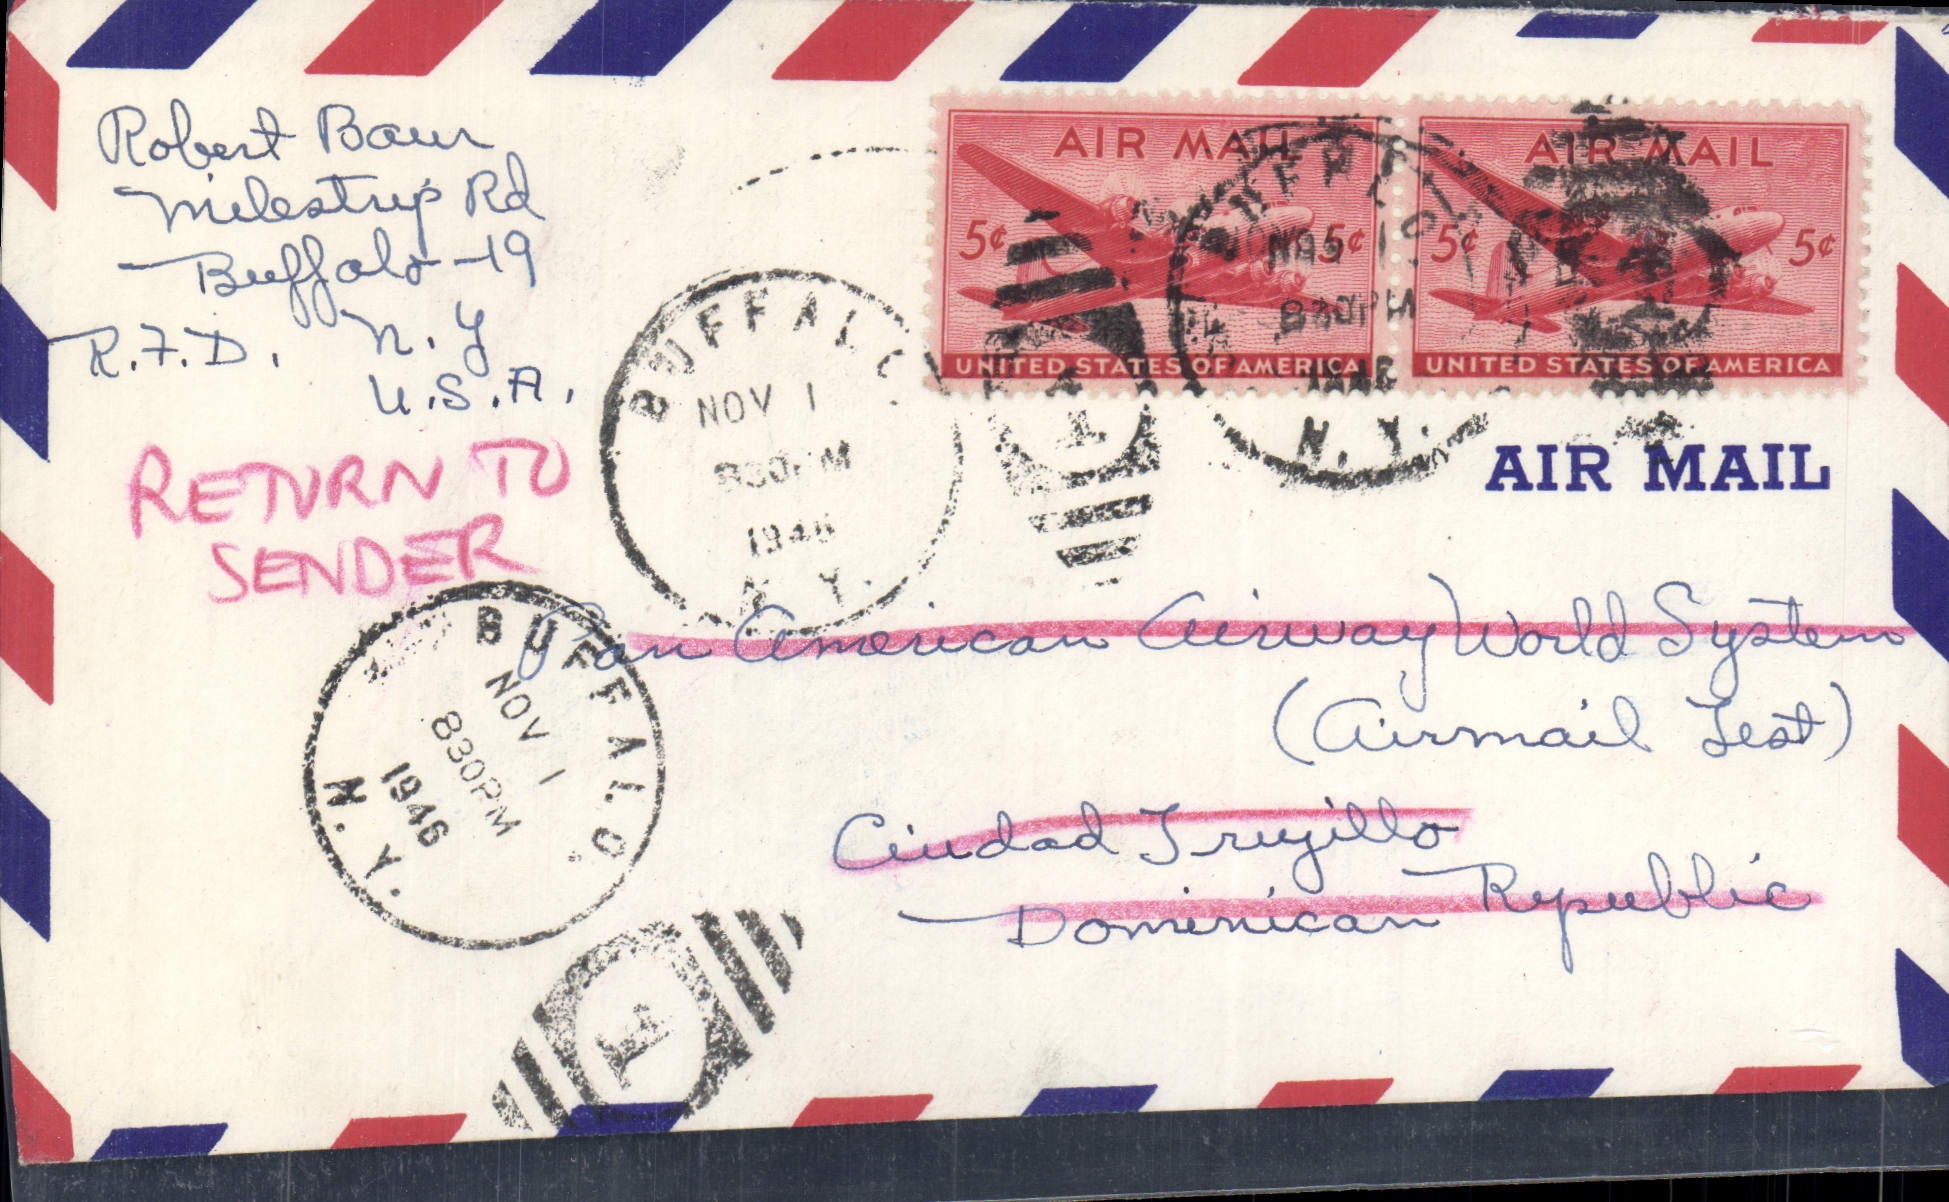 Robert Baur
Milestrip Rd
Buffalo-19
R.F.D. N.Y
U.S.A.
RETURN TO
SENDER
AIR MAIL
5¢ 5¢
UNITED STATES OF AMERICA
AIR MAIL
5¢ 5¢
UNITED STATES OF AMERICA
BUFFALO
NOV 1
830PM
1946
N.Y.
BUFFALO
NOV 1
830PM
1946
N.Y.
1
AIR MAIL
Pan American Airway World System
(Airmail Test)
Ciudad Trujillo
Dominican Republic
BUFFALO
NOV 1
830PM
1946
N.Y.
1